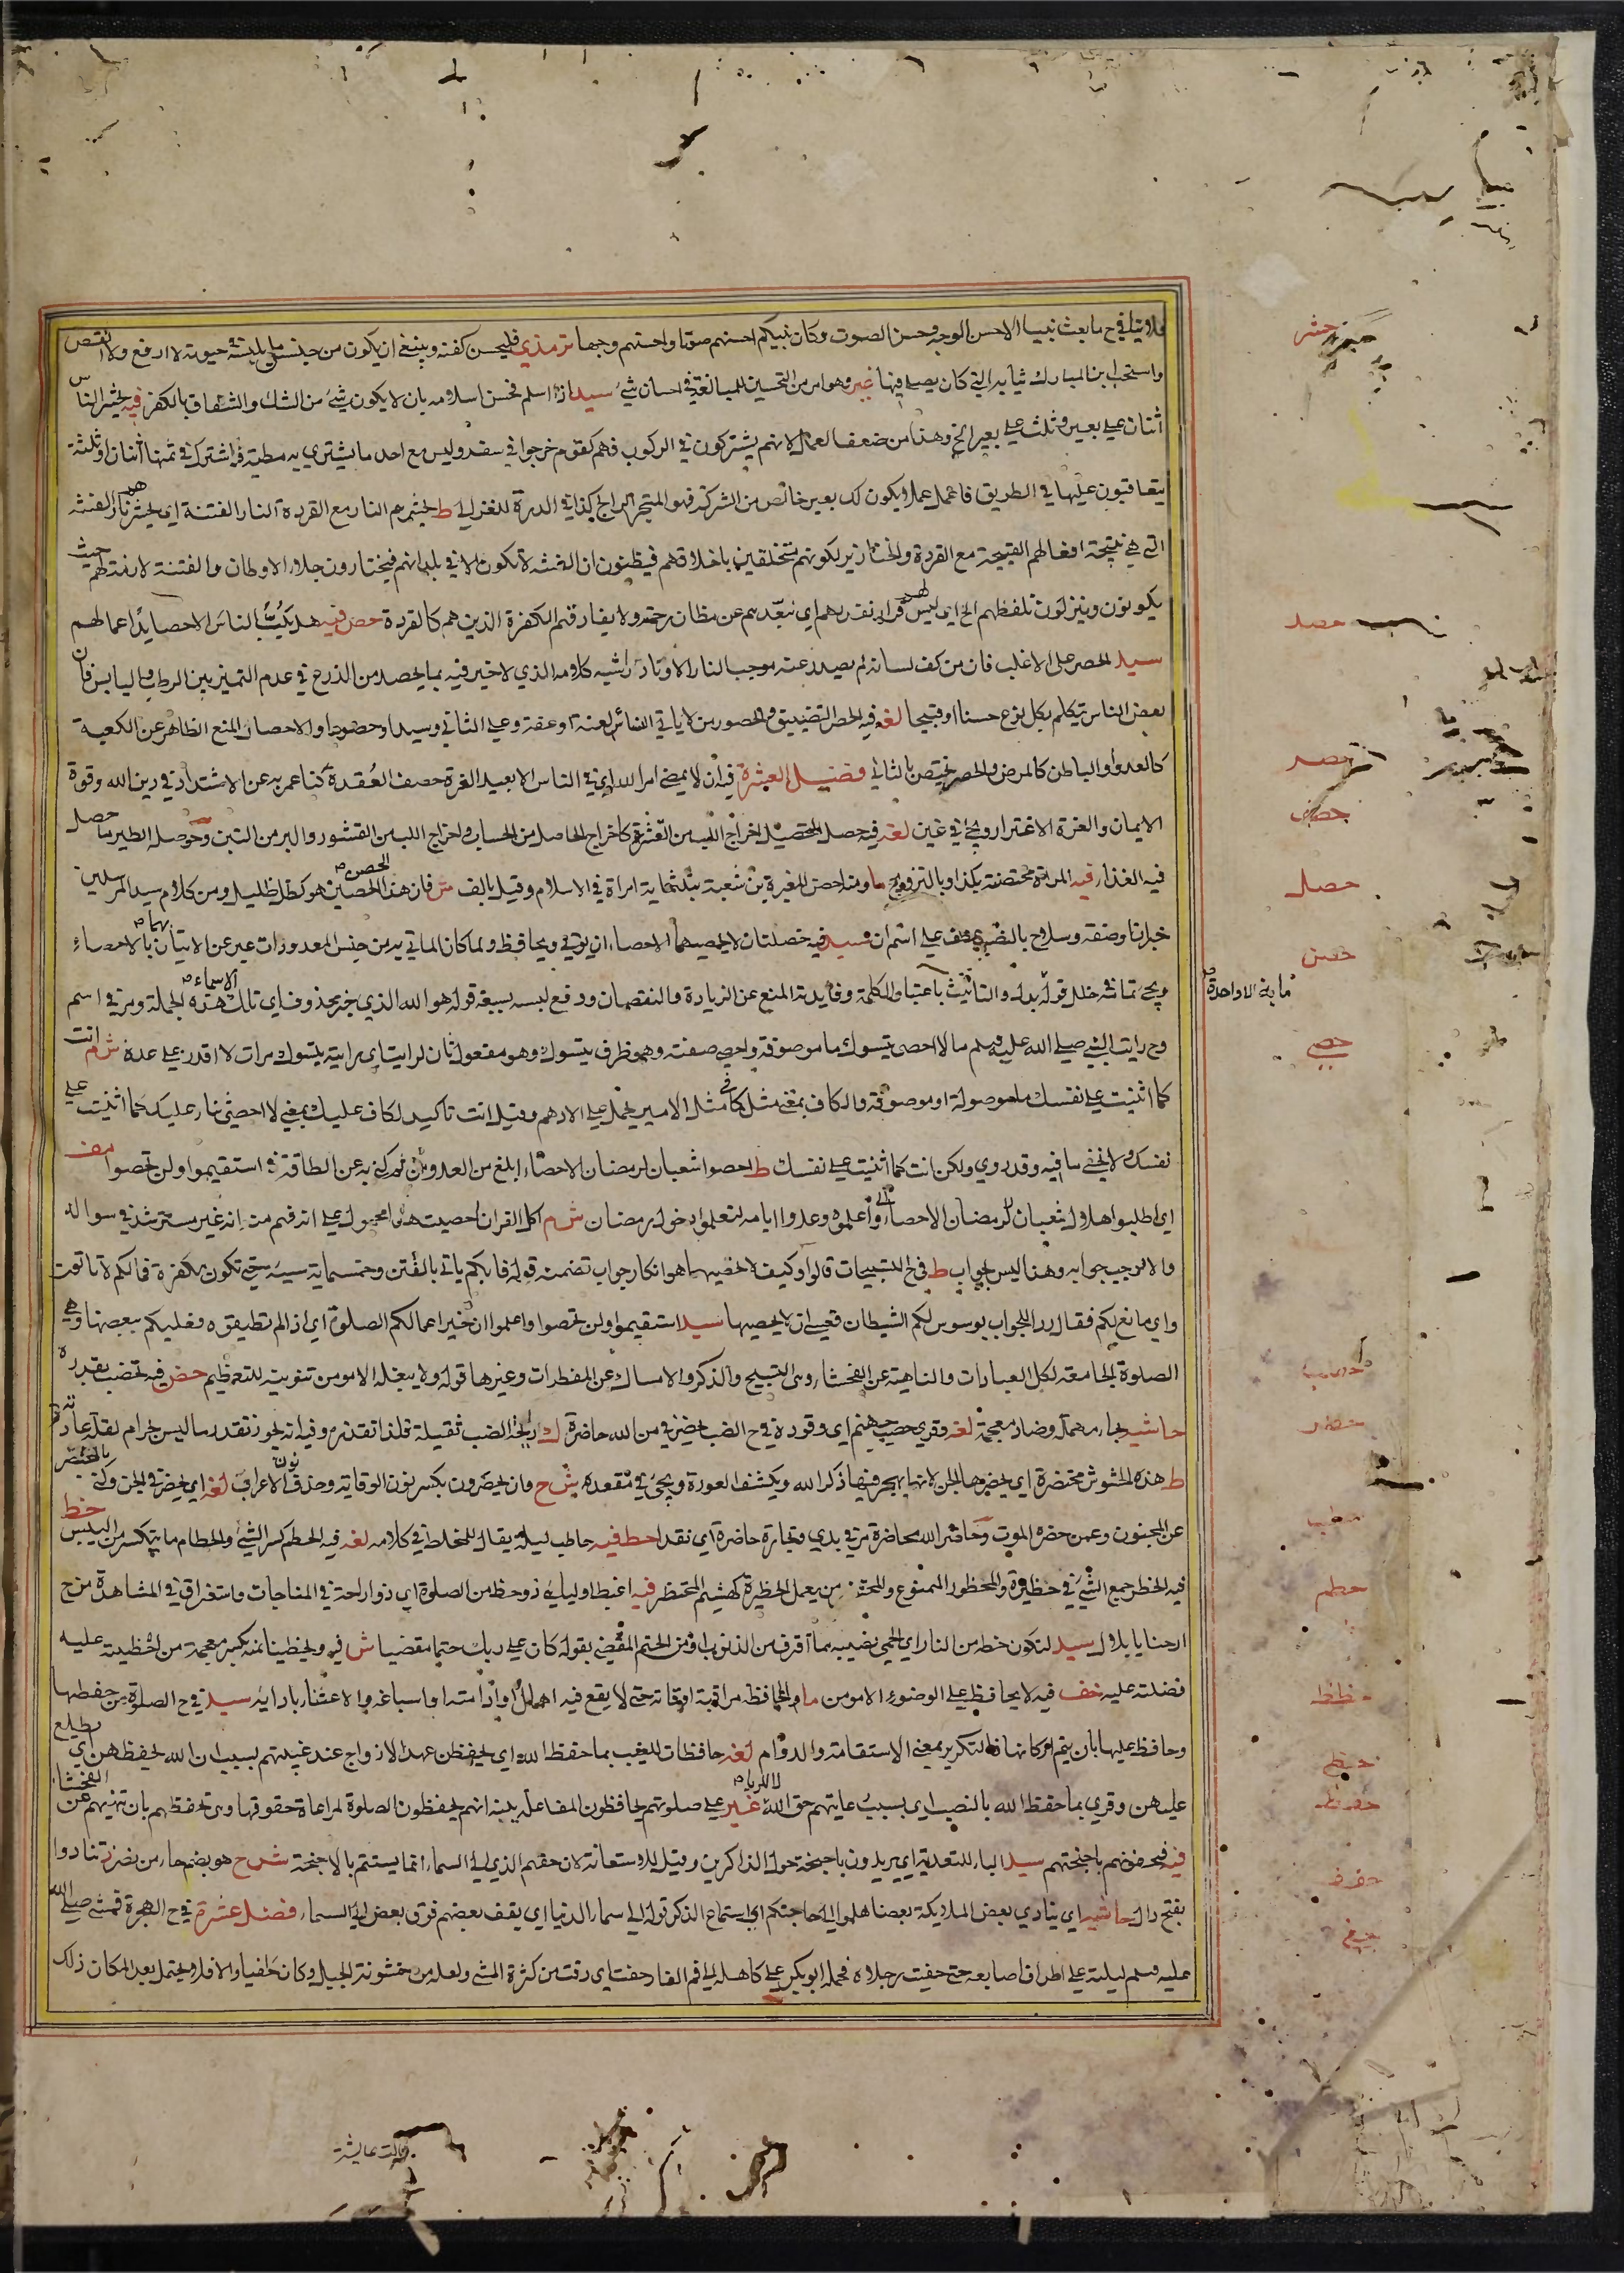 فلا ينافي ح ما بعث نبيا الا حسن الوجه وحسن الصوت وكان نبيكم احسنهم صوتا واحسنهم وجها ترمذي فليحسن كفنه وينبغي ان يكون من جنس ما يلبسه في حيوته لا ارفع ولا انقص
واستحب ابن المبارك ثيابه التي كان يصلي فيها غير وهو امر من التحسين للمبالغة في احسان شيء سيد اذا اسلم فحسن اسلامه بان لا يكون شيء من الشك والنفاق بالكفر فيه يحشر الناس
اثنان على بعير وثلثة على بعير الخ وهذا من ضعف العمل لانهم يشتركون في الركوب فهم كقوم خرجوا في سفر وليس مع احد ما يشتري به مطية فاشترك في ثمنها اثنان او ثلثة
يتعاقبون عليها في الطريق فاعمل عملا يكون لك بعير خالص من الشركة فهو المتجر الرابح كذا في الدرة للغزالي ط يحشرهم النار مع القردة النار الفتنة اي يحشرهم نار الفتنة
التي هي نتيجة افعالهم القبيحة مع القردة والخنازير لكونهم متخلقين باخلاقهم فيظنون ان الفتنة لا تكون الا في بلدانهم فيختارون جلاء الاوطان والفتنة لازمة لهم حيث
يكونون وينزلون تلفظهم الخ اي ليس لهم قرار نقذرهم اي نبعدهم عن مظان رحمته ولا يفارقهم الكفرة الذين هم كالقردة حص فيه هل يكب الناس الا حصايد اعمالهم
سيد الحصر على الاغلب فان من كف لسانه لم يصدر عنه موجب النار الا نادرا شبه كلامه الذي لا خير فيه بما يحصد من الزرع في عدم التمييز بين الرطب واليابس فان
بعض الناس يتكلم بكل نوع حسنا او قبيحا لغه فيه الحصر التضييق والحصور من لا ياتي النساء لعنة او عفة وعلى الثاني وسيدا وحصورا والاحصار المنع الظاهر عن الكعبة
كالعدو او الباطن كالمرض والحصر يختص بالثاني فضيل العشرة فيه ان لا يمضي امر الله اي في الناس الا بعيد الغرة حصيف العقدة كنا عمر به عن الاشتداد في دين الله وقوة
الايمان والغرة الاغترار ويجيء في غين لغه فيه حصل التحصيل اخراج اللب من القشرة كاخراج الحاصل من الحساب واخراج اللب من القشور والبر من التبن وحوصلة الطير ما حصل
فيه الغذاء فيه المراة محتضنة بكذا وبالتزويج ما ومنه احصن المغيرة بن شعبة بثلثماية امراة في الاسلام وقيل بالف ش فان هذا الحصن الحصين هو كظل ظليل ومن كلام سيد المرسلين
خبر ان وصفة وسلاح بالنصب عطف على اسم ان سيد فيه خصلتان لا يحصيهما الاحصاء ان يوتي ويحافظ ولما كان الماتي به من جنس المعدودات عبر عن الاتيان بهما بالاحصاء
ويجيء تمامه في خلل قوله بدل والتانيث باعتبار الكلمة وفايدته المنع عن الزيادة والنقصان ودفع لبسه بسبعة قوله هو الله الذي خبر محذوف اي تلك الاسماء هذه الجملة ومر في اسم
وح رايت النبي صلى الله عليه وسلم ما لا احصي يتسوك ما موصوفة واحصي صفته وهو ظرف يتسوك وهو مفعول ثان لرايت اي رايته يتسوك مرات لا اقدر على عده ش م انت
كما اثنيت على نفسك ما موصولة او موصوفة والكاف بمعنى مثل كما في مثل الامير يحمل على الادهم وقيل انت تاكيد لكاف عليك بمعنى لا احصي ثناء عليك كما اثنيت على
نفسك ولا يخفى ما فيه وقد روي ولكن انت كما اثنيت على نفسك ط احصوا شعبان لرمضان الاحصاء ابلغ من العد ومن ثم كني به عن الطاقة في استقيموا ولن تحصوا مف
اي اطلبوا هلال شعبان لرمضان الاحصاء واعلموه وعدوا ايامه لتعلموا دخول رمضان ش م اكل القران احصيت هذا محمول على انه فهم منه انه غير مسترشد في سواله
والا لوجب جوابه وهذا ليس بجواب ط في ح التسبيحات قالوا وكيف لا نحصيها هو انكار جواب تضمنه قوله فايكم ياتي بالفين وخمسماية سيئة حتى تكون مكفرة فما لكم لا تاتون
واي مانع لكم فقال رد الجواب يوسوس لكم الشيطان فعسى ان لا يحصيها سيد استقيموا ولن تحصوا واعلموا ان خير اعمالكم الصلوة اي اذا لم تطيقوه فعليكم ببعضها وهي
الصلوة الجامعة لكل العبادات والناهية عن الفحشاء ومن التسبيح والذكر والامساك عن المفطرات وغيرها قوله ولا يبغله الا مومن تنوينه للتعظيم حض فيه تحضب بقدره
حاشيه بحاء مهملة وضاد معجمة لغه وقري حضب جهنم اي وقوده في ح الضب يحضرني من الله حاضرة ك رايحة الضب ثقيلة فلذا تقذره وفيه انه يجوز تقذر ما ليس بحرام لقلة عادته
ط هذه الحشوش محتضرة اي يحضرها الجن لانها يهجر فيها ذكر الله ويكشف العورة ويجيء في مقعده ش ح وان يحضرون بكسر نون الوقاية وحذف نون الاعراب لغه اي يحضرني الجن وكني بالمحتضر
عن المجنون وعمن حضره الموت وحاضر الله محاضرة مر في بدي وتجارة حاضرة اي نقدا حط فيه حاطب ليله يقال للمخلط في كلامه لغه فيه الحطم كسر الشيء والحطام ما يتكسر من اليبس حظ
فيه الحظر جمع الشيء في حظيرة والمحظور الممنوع والمحتظر من يعمل الحظيرة كهشيم المحتظر فيه اغبط اوليايي ذو حظ من الصلوة اي ذو راحة في المناجات واستغراق في المشاهدة من ح
ارحنا يا بلال سيد لتكون حظه من النار اي الحمى نصيبه بما اقترف من الذنوب او من الحتم المقضي بقوله كان على ربك حتما مقضيا ش فيه ولحظينا منه بكسر معجمة من احظيته عليه
فضلته عليه حف فيه لا يحافظ على الوضوء الا مومن ما والمحافظة مراقبة اوقاته حتى لا يقع فيه اهمال او ادامته او اسباغه والاعتناء بادابه سيد في ح الصلوة من حفظها
وحافظ عليها بان يتم اركانها فالتكرير بمعنى الاستقامة والدوام لغه حافظات للغيب بما حفظ الله اي يحفظن عهد الازواج عند غيبتهم بسبب ان الله يحفظهن اي يطلع
عليهن وقري بما حفظ الله بالنصب اي بسبب رعايتهم حق الله لا للرياء غير على صلوتهم يحافظون المفاعلة بينه انهم يحفظون الصلوة لمراعاة حقوقها وهي تحفظهم بان تنهيهم عن الفحشاء
فيه فيحفونهم باجنحتهم سيد الباء للتعدية اي يديرون باجنحة حول الذاكرين وقيل للاستعانة لان حفهم الذي الى السماء انما يستتم بالاجنحة ش ح هو بضم حاء من نصر تنادوا
بفتح دال حاشيه اي ينادي بعض الملائكة بعضا هلموا الى حاجتكم اي استماع الذكر قوله الى سماء الدنيا اي يقف بعضهم فوق بعض الى السماء فضل عشرة في ح الهجرة فمشى صلى الله
عليه وسلم ليلته على اطراف اصابعه حتى حفيت رجلاه فحمله ابو بكر على كاهله الى فم الغار حفت اي رقت من كثرة المشي ولعله من خشونة الجبل وكان حافيا والا فلا يحتمل بعد المكان ذلك
حشر
حصد
حصر
حصف
حصل
حصن
ما ية الا واحدة
حصي
حضب
حضر
حطب
حطم
حظظ
حفظ
حفف
حفي
قالت عايشة